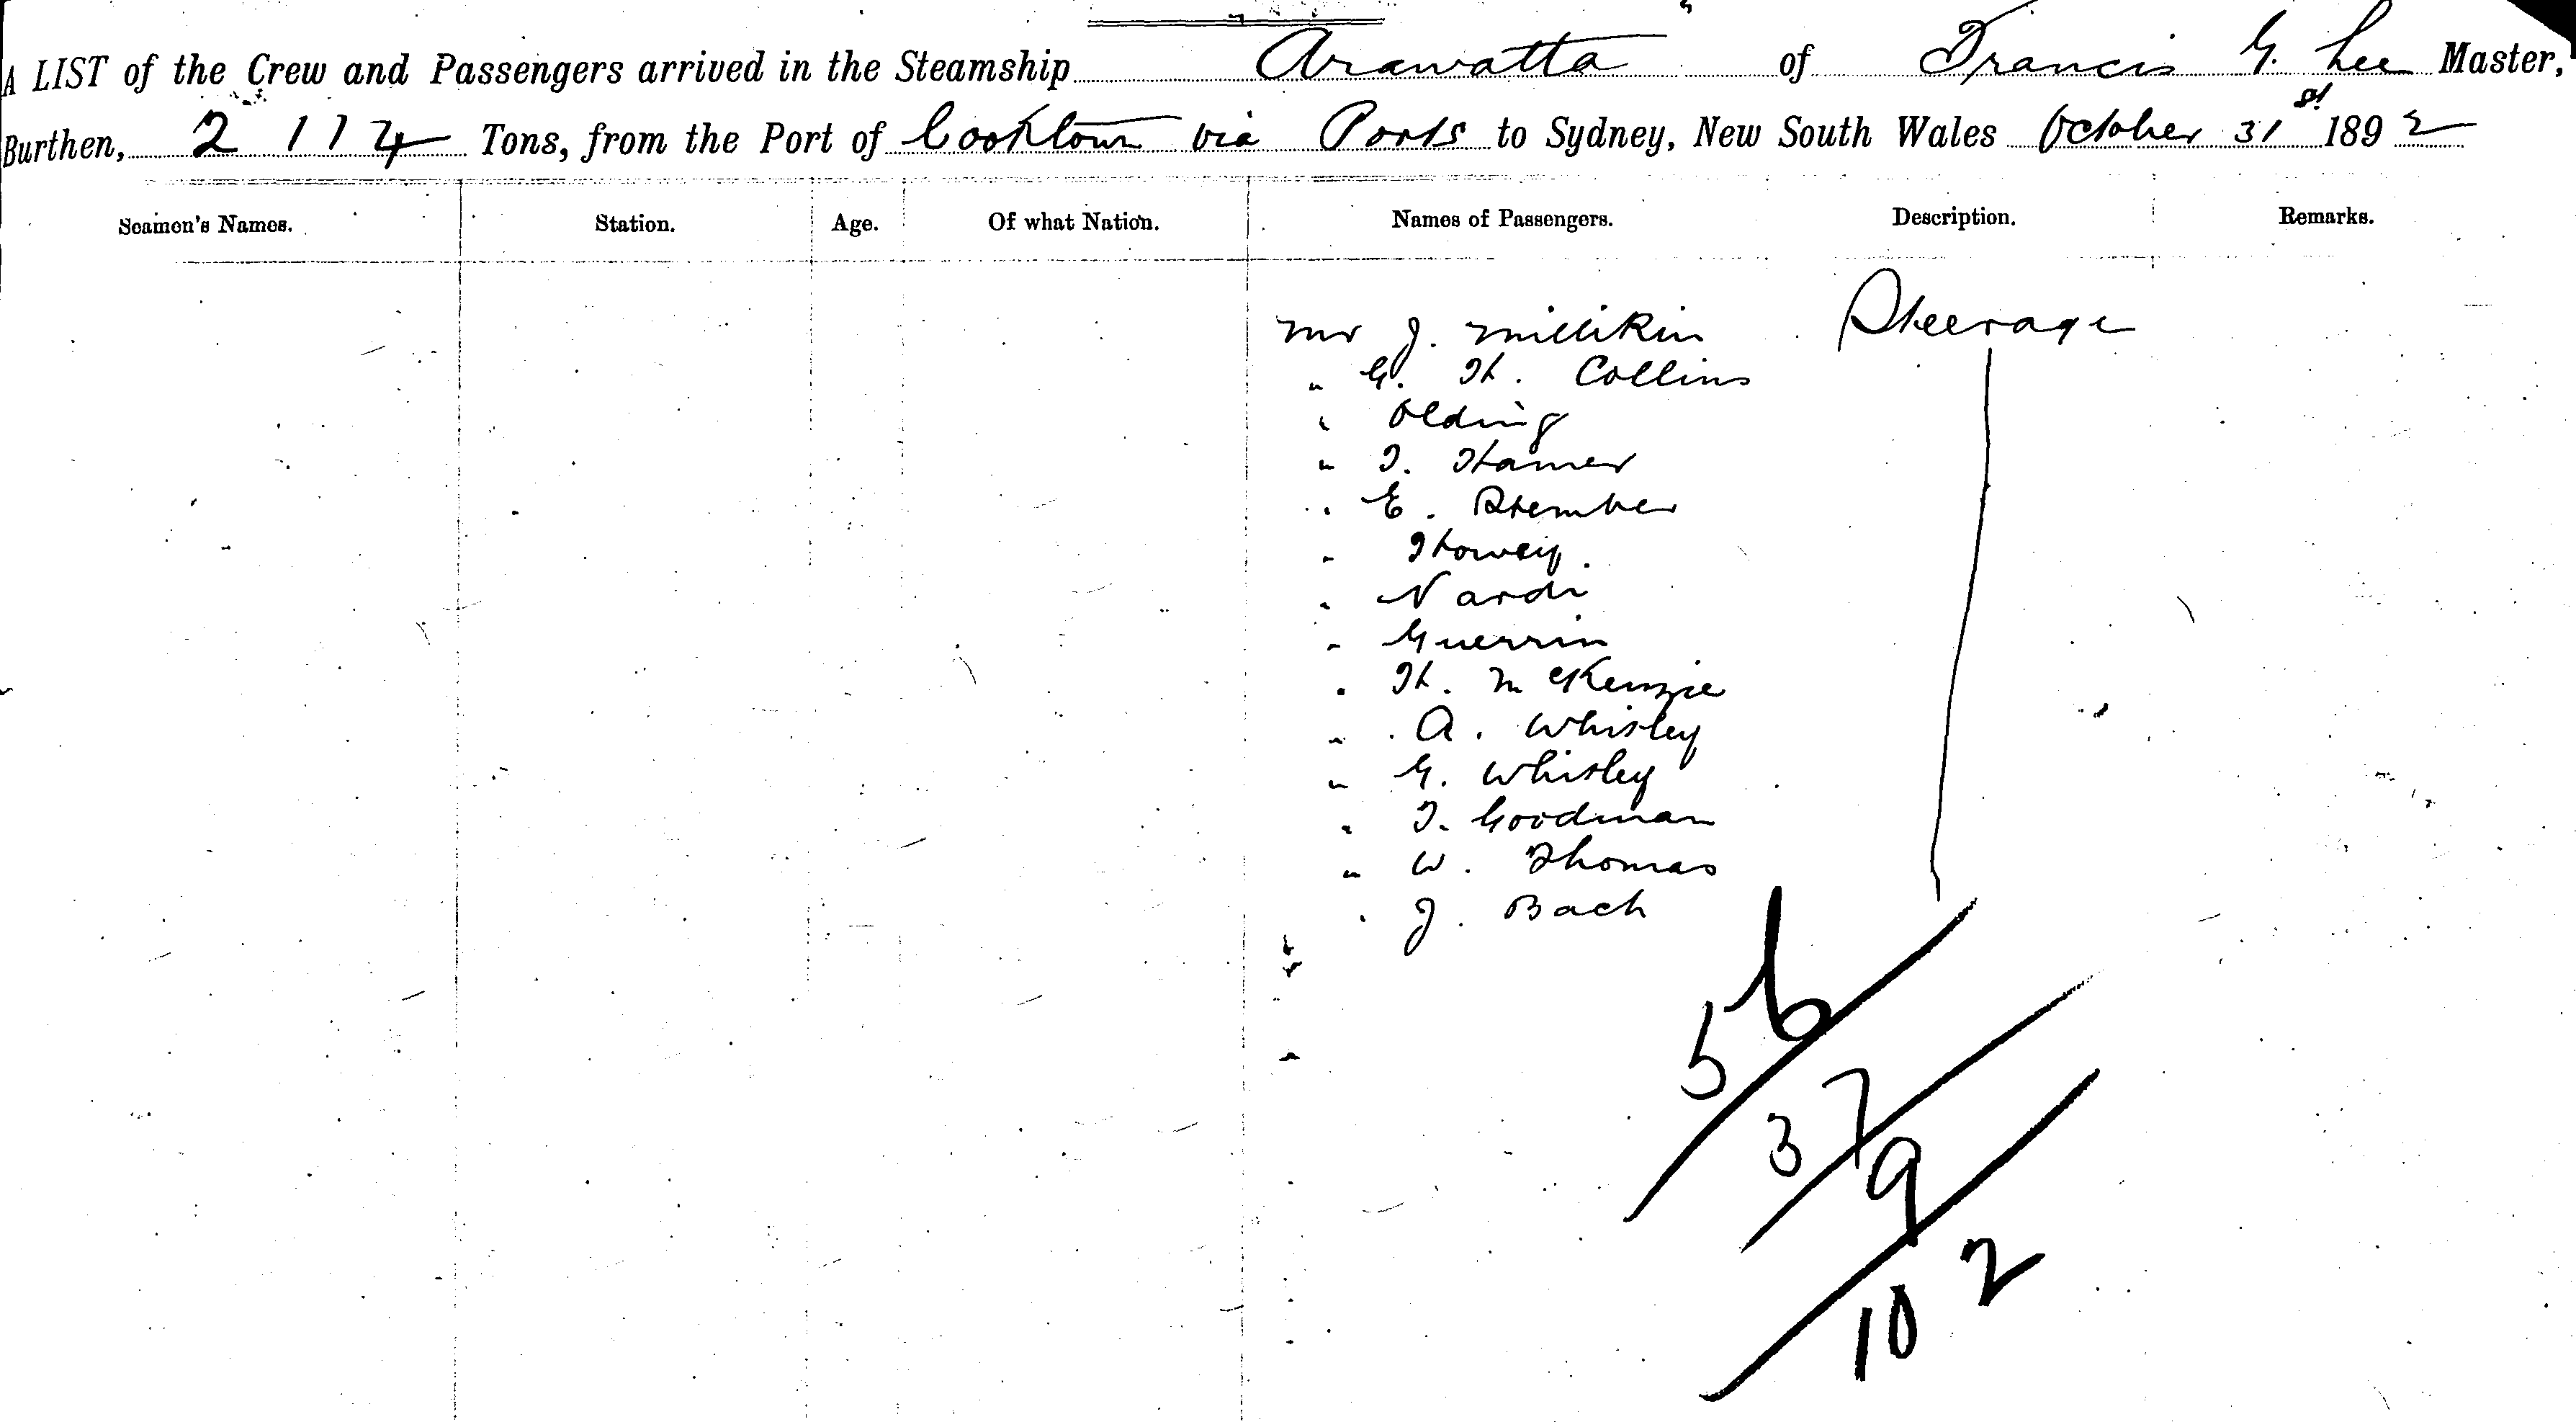 A LIST of the Crew and Passengers arrived in the Steamship Arawatta of Francis G. Lee Master,
Burthen, 2114 Tons, from the Port of Cooktown via Ports to Sydney, New South Wales October 31st 1892
Seamen's Names. Station. Age. Of what Nation. Names of Passengers. Description. Remarks.
Mr J. Millikin Steerage
" G. H. Collins
" Olding
" T. Hamer
" E. Stember
" Howey.
" Nardi
" Guerrin
" H. McKenzie
" A. Whisley
" G. Whisley
" T. Goodman
" W. Thomas
" J. Bach
56
37
9
102